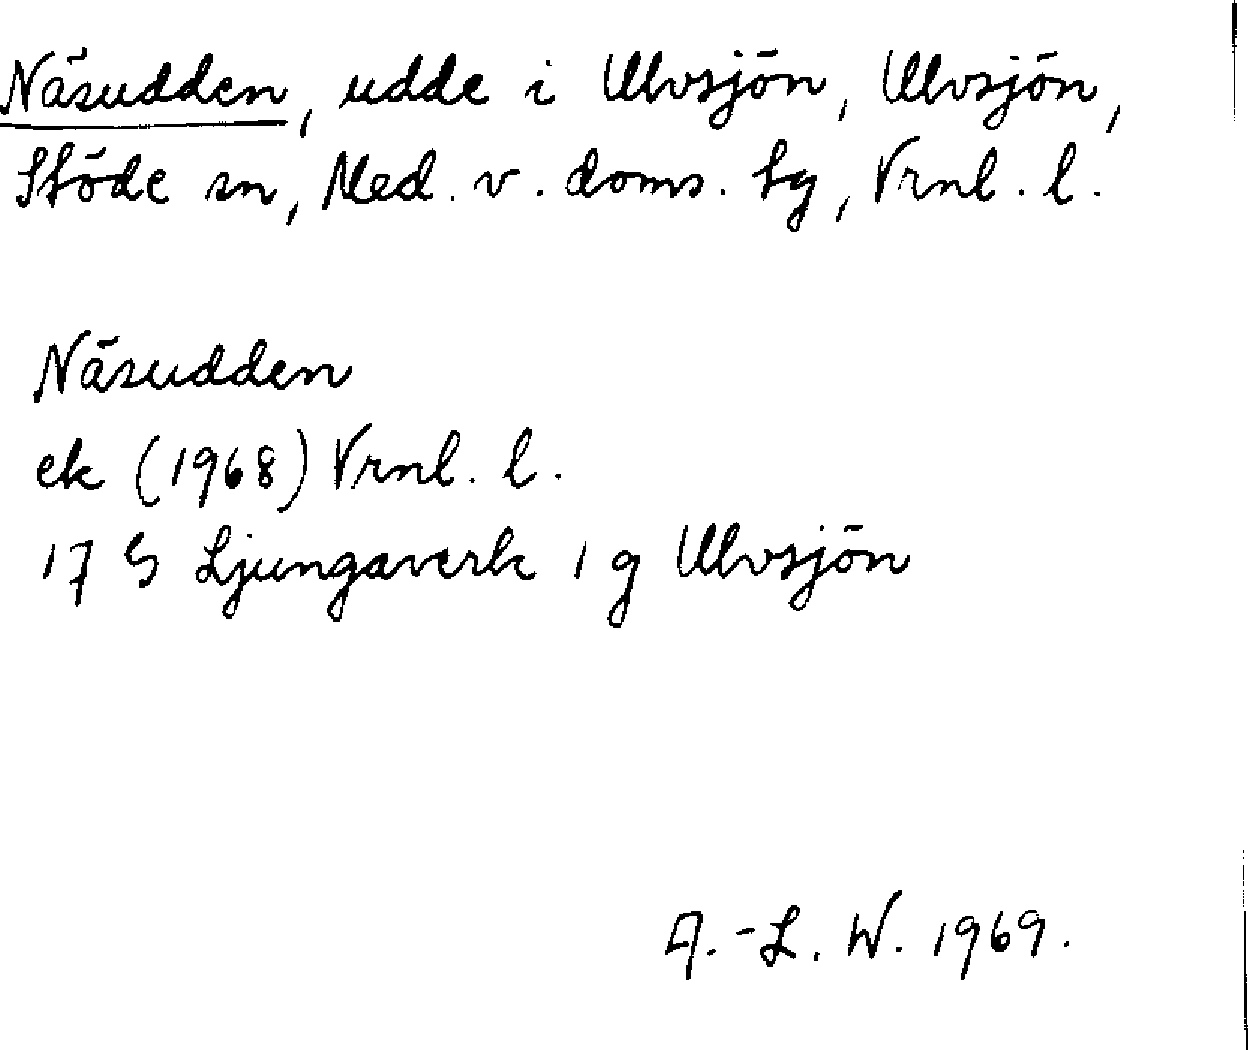 Näsudden, udde i Ulvsjön, Ulvsjön,
Stöde sn, Med. v. doms. tg, Vrnl. l.
Näsudden
ek (1968) Vrnl. l.
17 G Ljungaverk 1 g Ulvsjön
A.-L. W. 1969.